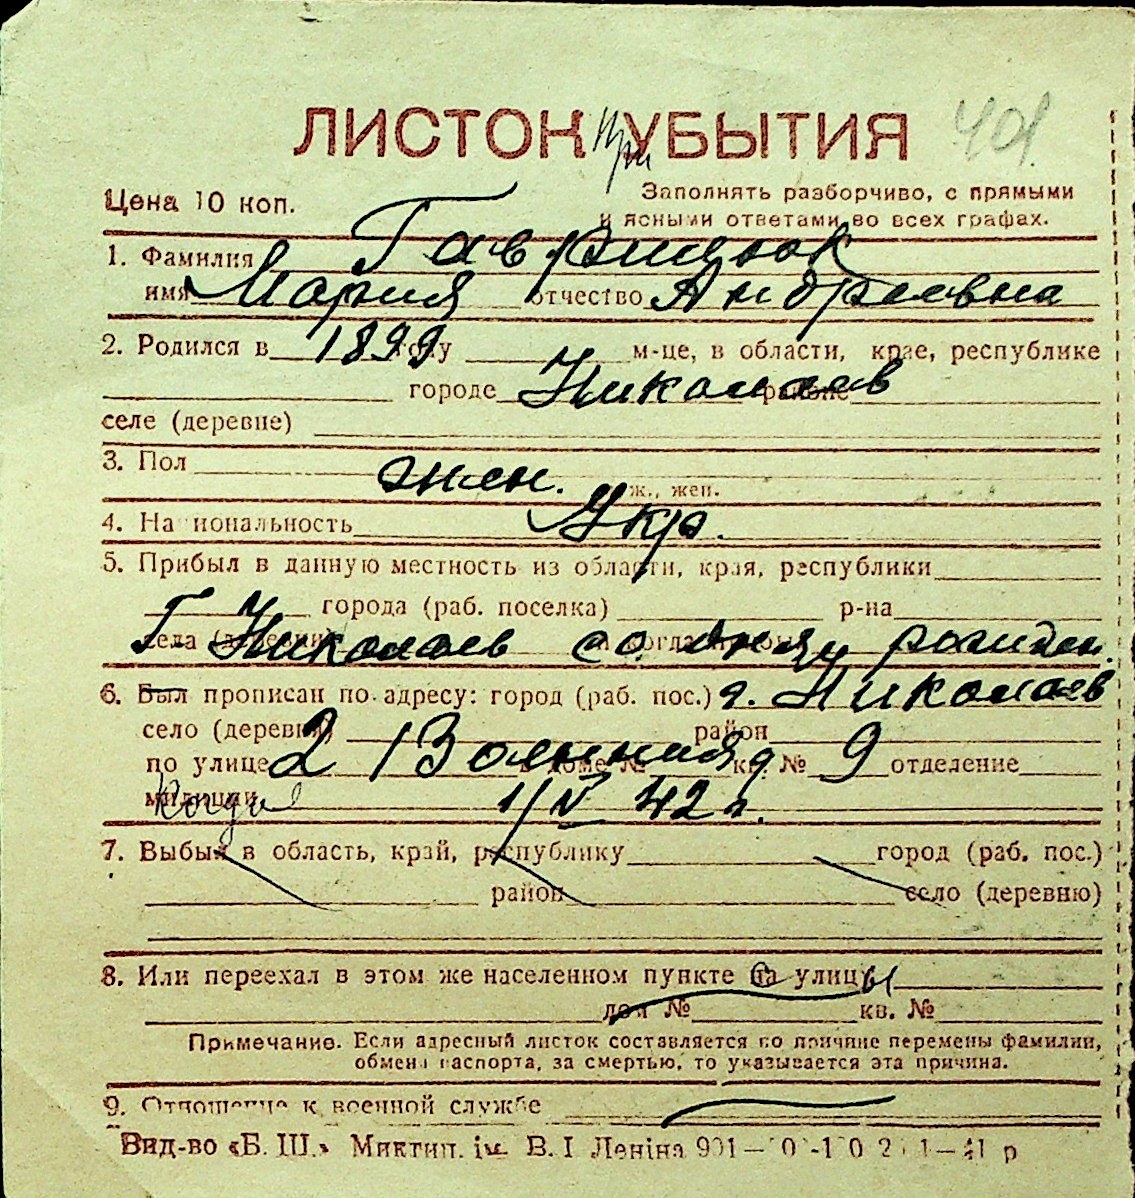 ЛИСТОК при УБЫТИЯ 401
Цена 10 коп. Заполнять разборчиво, с прямыми
и ясными ответами во всех графах.
1. Фамилия Гаврищюк
имя Мария отчество Андреевна
2. Родился в 1899 году м-це, в области, крае, республике
городе Николаев районе
селе (деревне)
3. Пол жен. муж., жен.
4. Национальность Укр.
5. Прибыл в данную местность из области, края, республики
города (раб. поселка) р-на
села (деревни) когда прибыл
Г. Николаев со дня рожден.
6. Был прописан по адресу: город (раб. пос.) г. Николаев
село (деревня) район
по улице 2 Военная в доме № кв. № 9 отделение
милиции когда 1/IV 42 г.
7. Выбыл в область, край, республику город (раб. пос.)
район село (деревню)
8. Или переехал в этом же населенном пункте с улицы
дом № кв. №
Примечание. Если адресный листок составляется по причине перемены фамилии,
обмена паспорта, за смертью, то указывается эта причина.
9. Отношение к военной службе
Вид-во «Б. Ш.» Миктип. ім. В. І Леніна